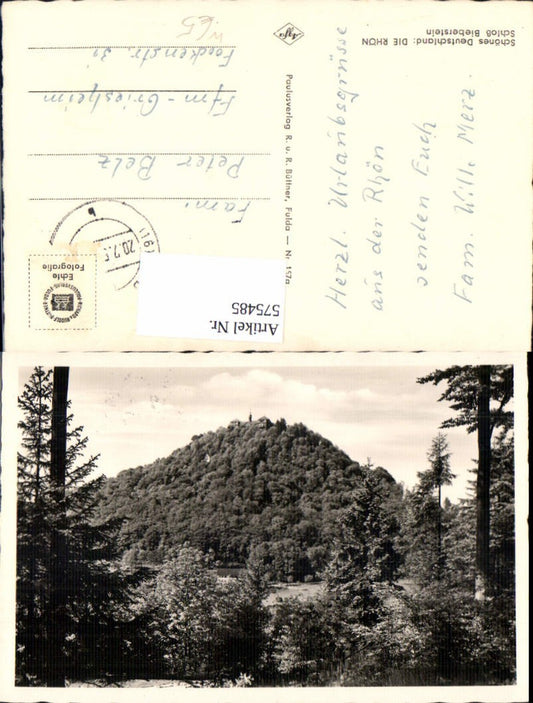 Schönes Deutschland: DIE RHÖN
Schloß Bieberstein
Herzl. Urlaubsgrüsse
aus der Rhön
senden Euch
Fam. Willi Merz.
Paulusverlag R. u. R. Büttner, Fulda — Nr. 157a
Agfa
Echte
Fotografie
(16)
20.7.5
b
Fam.
Peter Belz
Ffm-Griesheim
31
W65
Artikel Nr.
575485